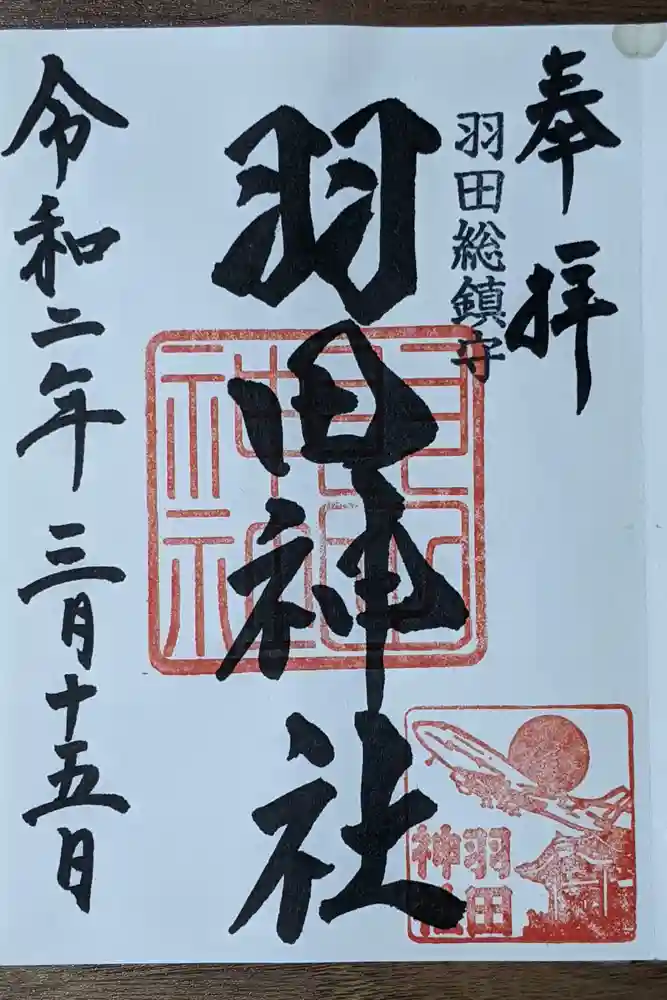 奉拝
羽田総鎮守
羽田神社
令和二年三月十五日
羽田
神社
羽田
神社